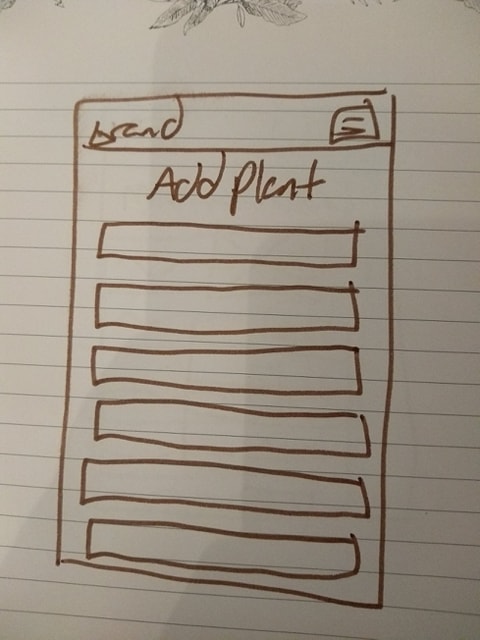 Brand
Add Plant